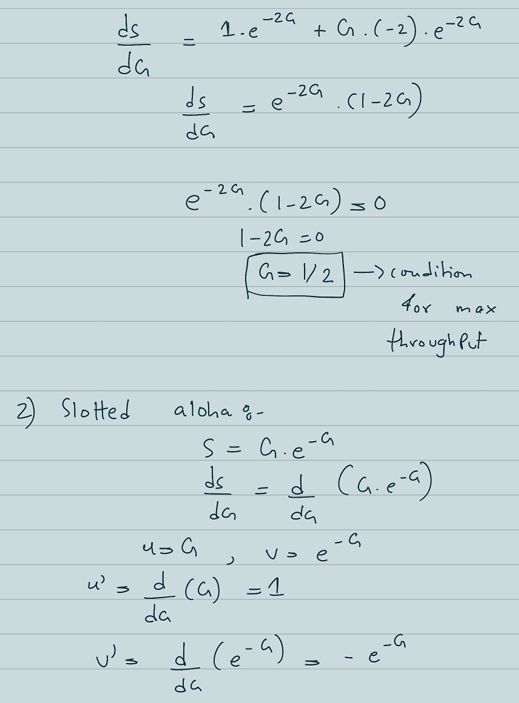 ds/dG = 1.e^-2G + G.(-2).e^-2G
ds/dG = e^-2G .(1-2G)
e^-2G.(1-2G) = 0
1-2G = 0
G = 1/2 → condition
for max
throughput
2) Slotted aloha :-
S = G.e^-G
ds/dG = d/dG (G.e^-G)
u = G , v = e^-G
u' = d/dG (G) = 1
v' = d/dG (e^-G) = - e^-G